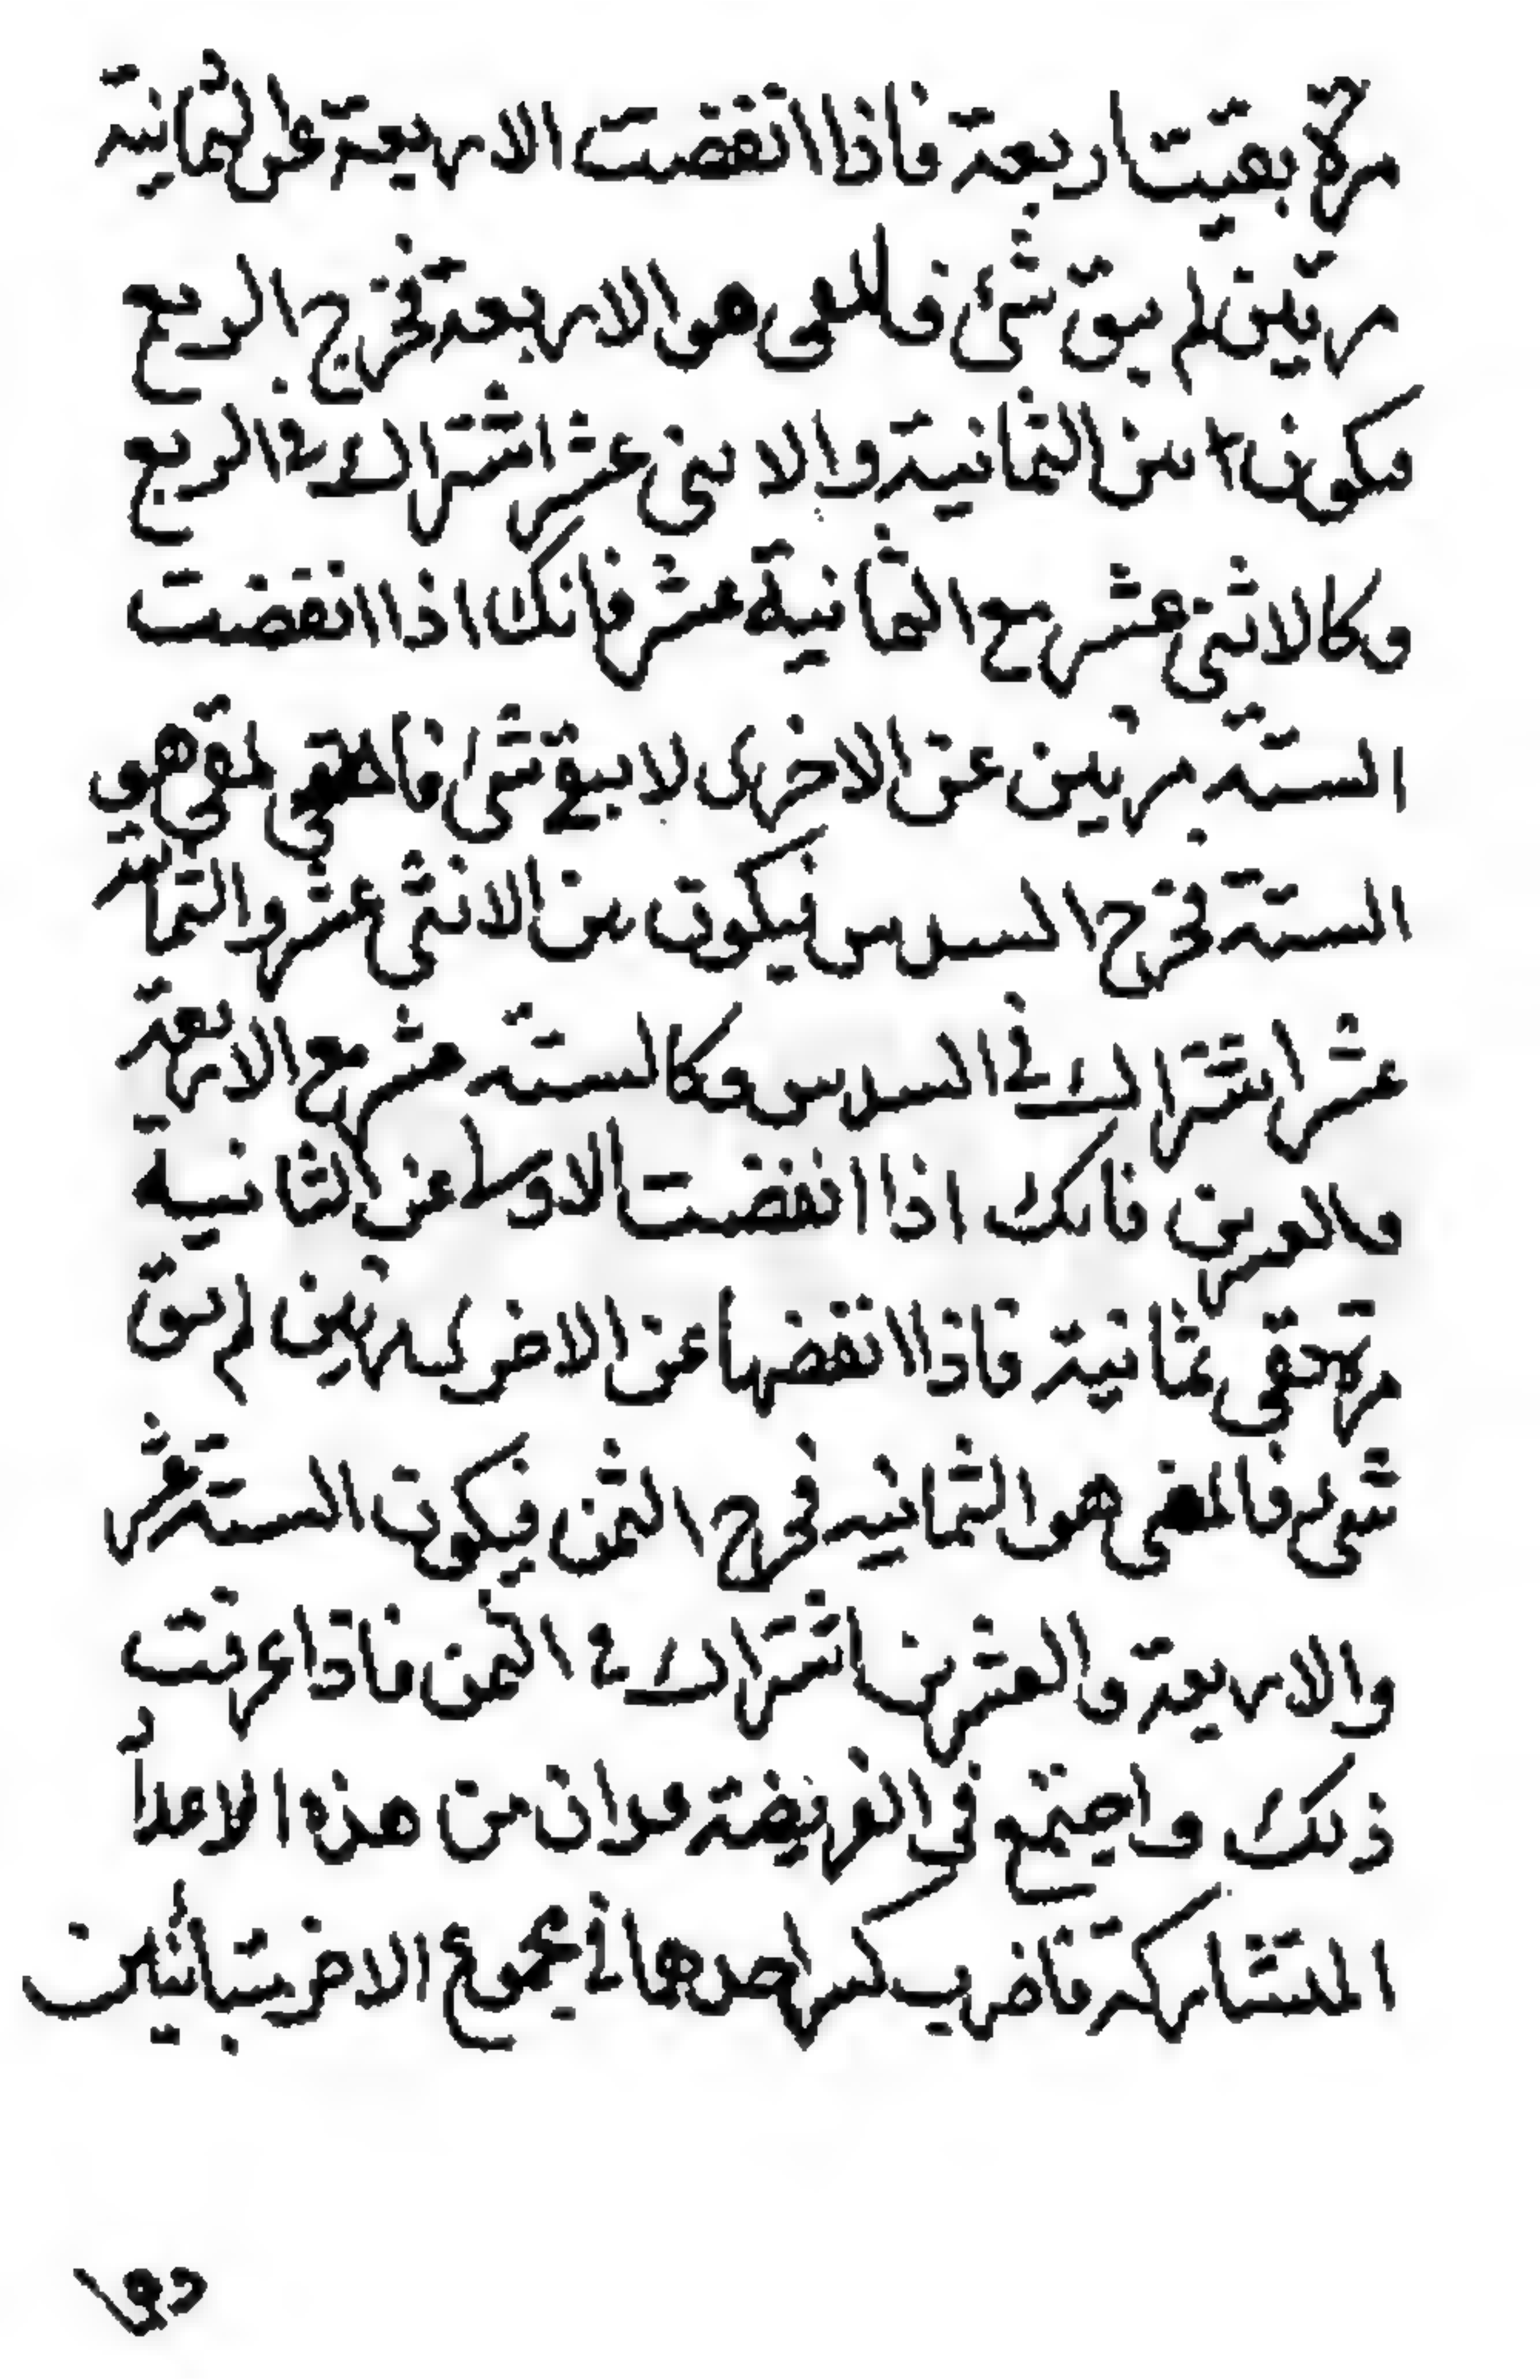 مرة بقيت اربعة فاذا انقضت الاربعة عن الثمانية
مرتين لم يبق شئ فالمفى هو الاربعة مخرج الربع
فيكون من الثمانية والاثنى عشر اشتراك في الربع
وكالاثنى عشر مع الثمانية عشر فانك اذا انقضت
الستة مرتين عن الاخرى لا يبقى شئ فالمفى هو
الستة مخرج السدس فيكون من الاثنى عشر والثمانية
عشر اشتراك في السدس وكالستة عشر مع الاربعة
والعشرين فانك اذا انقضت الاولى عن الثانية
مرة تبقى ثمانية فاذا انقضتها عن الاخرى مرتين لم يبق
شئ فالمفى هو الثمانية مخرج الثمن فيكون الستة عشر
والاربعة والعشرين اشتراك في الثمن فاذا عرفت
ذلك واجتمع في الفريضة عددان من هذه الاعداد
المتشاركة فاضرب كسر احدها في مجموع الاخر متباينين